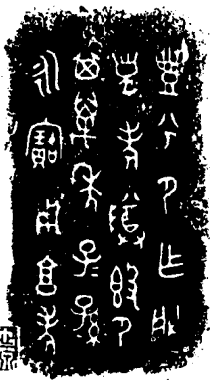 豐兮尸乍朕
皇考尊簋尸
其萬年子孫
永寶用享孝